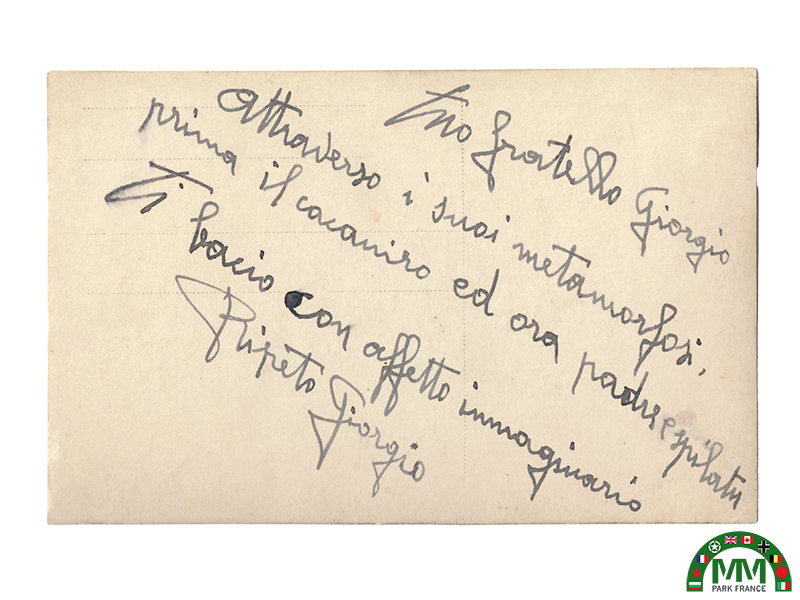 Tuo fratello Giorgio
Attraverso i suoi metamorfosi,
prima il cacaniro ed ora padre spilatu
Ti bacio con affetto immaginario
Ripeto Giorgio
MM
PARK FRANCE